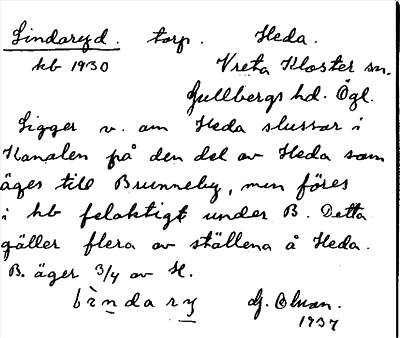 Lindaryd. torp. Heda.
kb 1930 Vreta Kloster sn.
Gullbergs hd. Ögl.
Ligger v. om Heda slussar i
Kanalen på den del av Heda som
äges till Brunneby, men föres
i kb felaktigt under B. Detta
gäller flera av ställena å Heda.
B. äger 3/4 av H.
lìndary G. Olsson.
1937